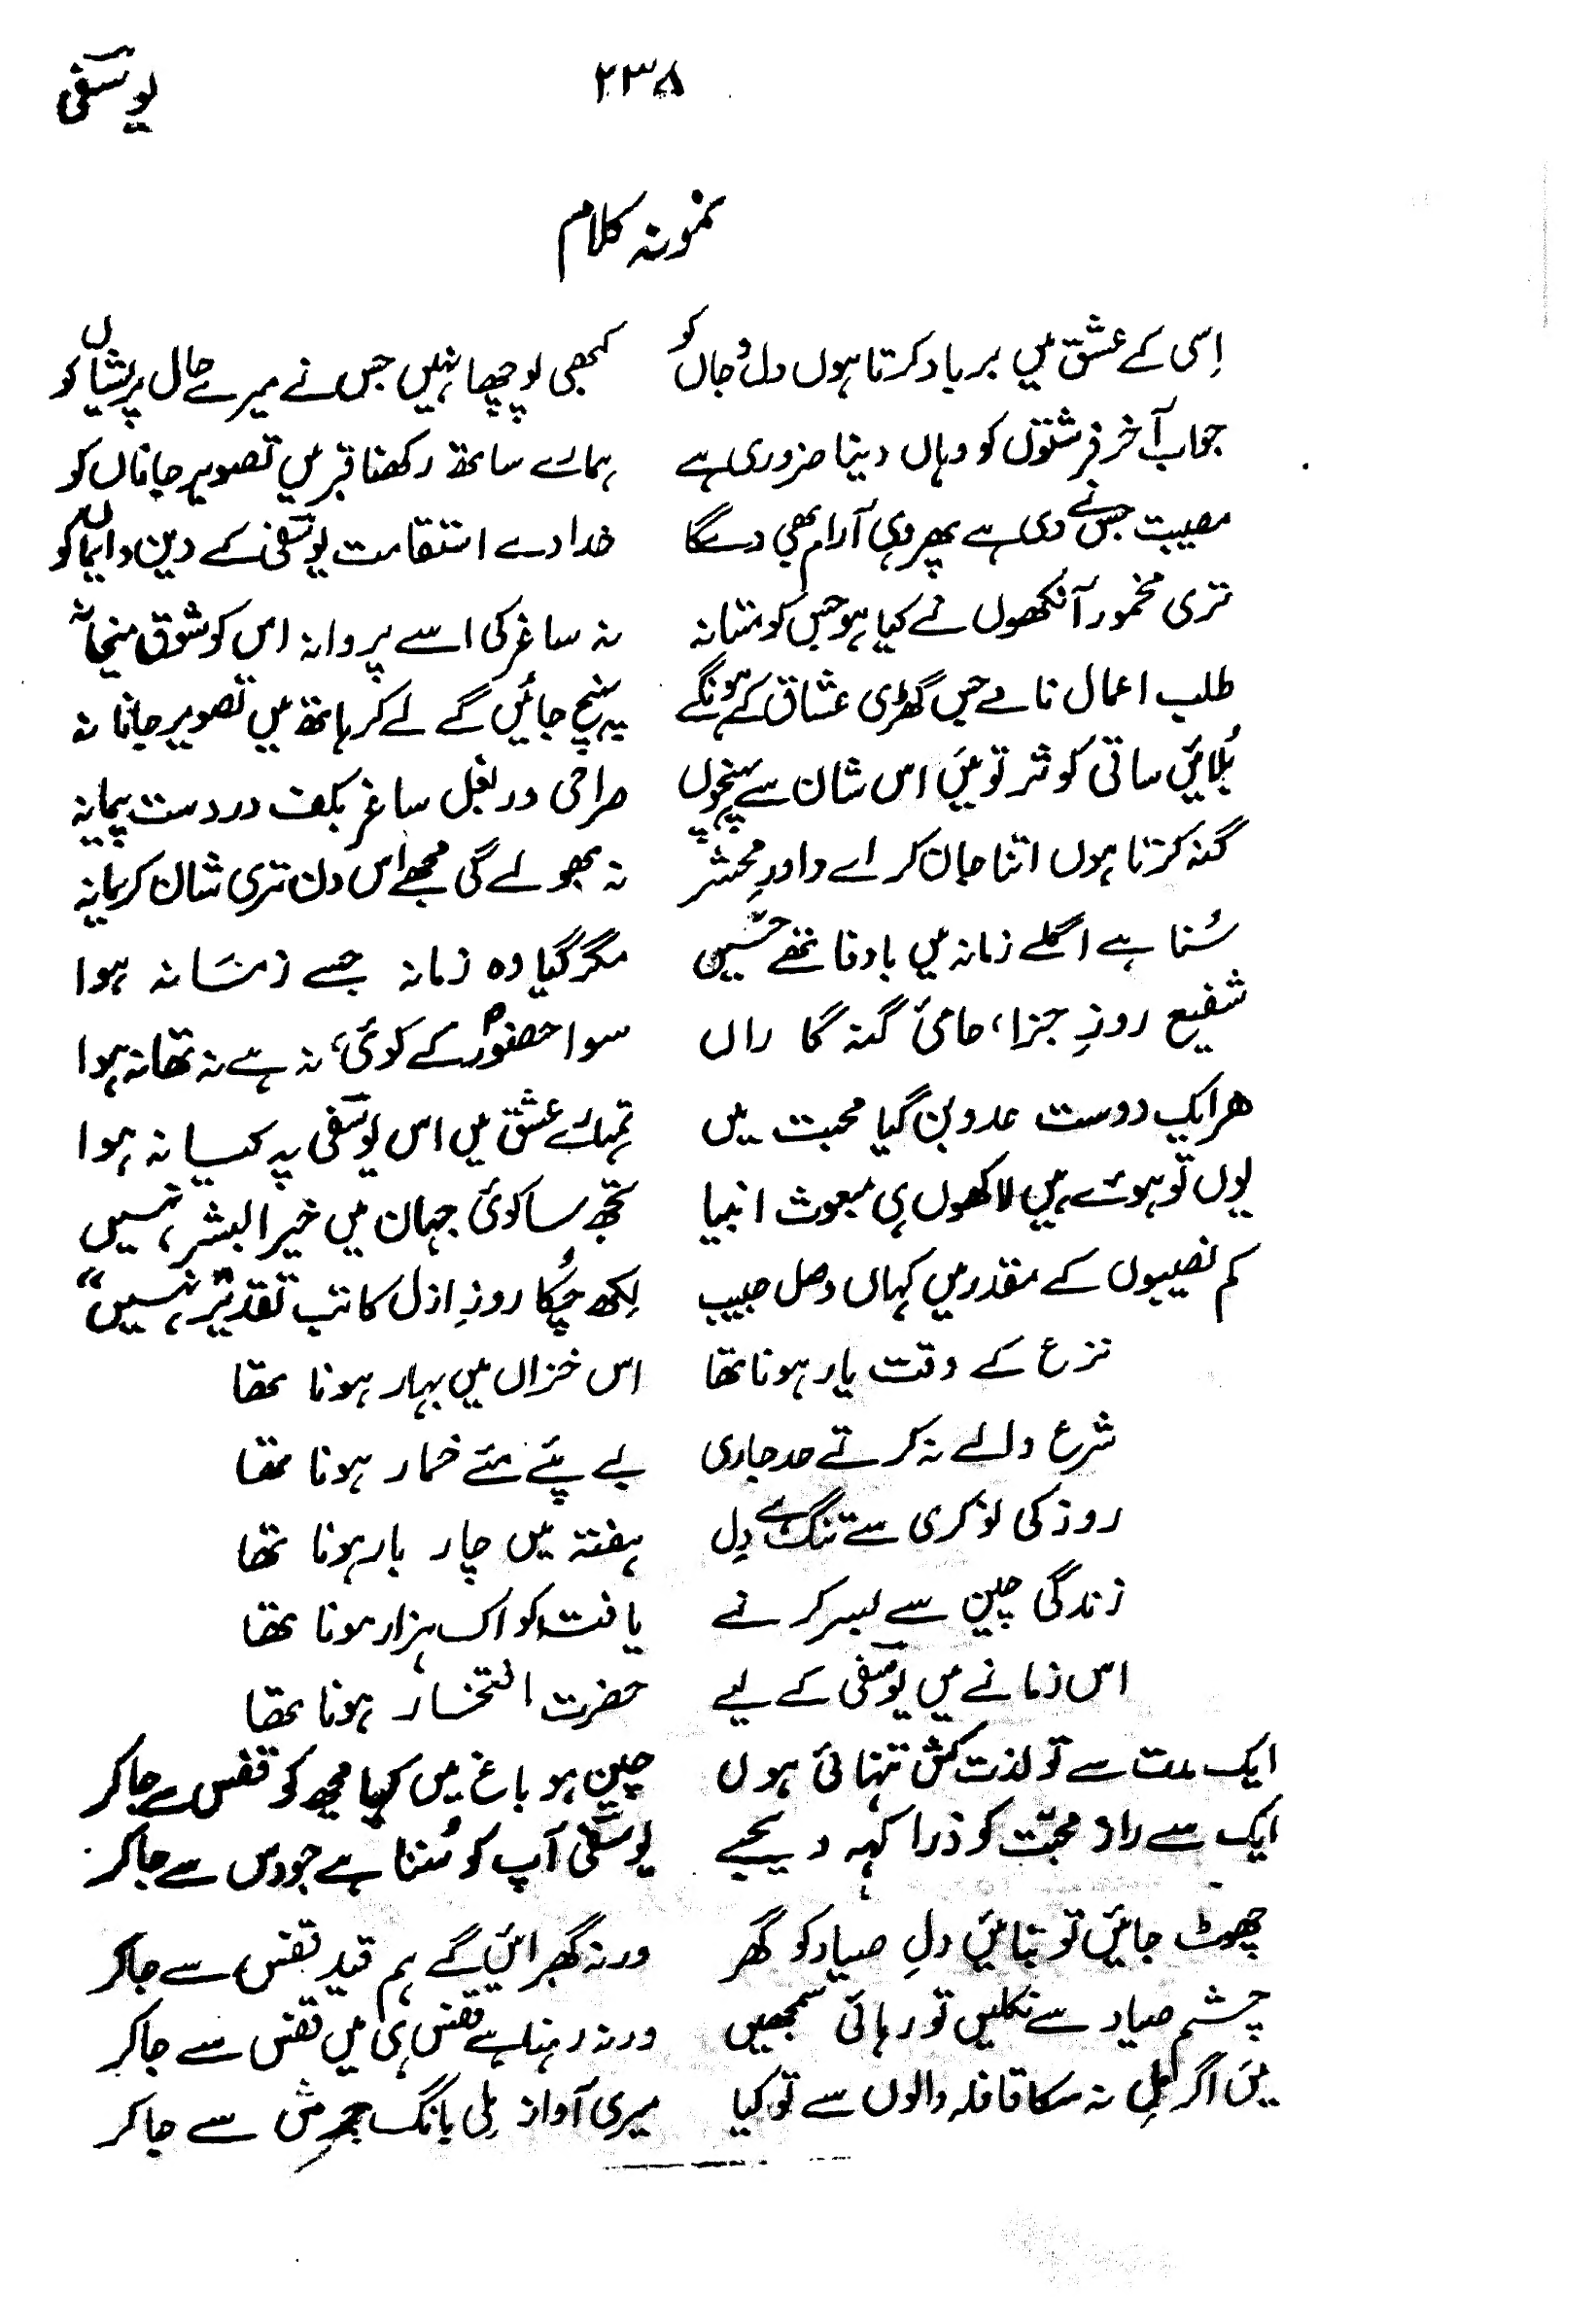 ۲۳۸ یوسفی
نمونہ کلام
اِسی کے عشق میں برباد کرتا ہوں دل و جاں کو کبھی پوچھا نہیں جس نے میرے حال پریشاں کو
جواب آخر فرشتوں کو وہاں دینا ضروری ہے ہمارے ساتھ رکھنا قبر میں تصویرِ جاناں کو
مصیبت جس نے دی ہے پھر وہی آرام بھی دے گا خدا دے استقامت یوسفی کے دین و ایماں کو
تری مخمور آنکھوں نے کیا ہو جس کو مستانہ نہ ساغر کی اسے پروا نہ اس کو شوق میخانہ
طلب اعمال نامے جس گھڑی عشاق کے ہونگے پہنچ جائیں گے لے کر ہاتھ میں تصویر جانانہ
بُلائیں ساقی کوثر تو میں اس شان سے پہنچوں صراحی در بغل ساغر بکف در دست پیمانہ
گنہ کرتا ہوں اتنا جان کر اے داورِ محشر نہ بھولے گی مجھے اس دن تری شان کریمانہ
سُنا ہے اگلے زمانہ میں باوفا تھے حسیں مگر گیا وہ زمانہ جسے زمانہ ہوا
شفیع روزِ جزا، حامیٔ گنہ گا راں سوا حضورؐ کے کوئی نہ ہے نہ تھا نہ ہوا
ھر ایک دوست عدو بن گیا محبت میں تمہارے عشق میں اس یوسفی پہ کیا نہ ہوا
یوں تو ہوئے ہیں لاکھوں ہی مبعوث انبیا تجھ سا کوئی جہان میں خیر البشر نہیں
کم نصیبوں کے مقدر میں کہاں وصل حبیب لکھ چُکا روزِ ازل کاتب تقدیر "نہیں"
نزع کے وقت یار ہونا تھا اس خزاں میں بہار ہونا تھا
شرع والے نہ کرتے حد جاری بے پئے مئے خمار ہونا تھا
روز کی نوکری سے تنگ ہے دِل ہفتہ میں چار بار ہونا تھا
زندگی چین سے بسر کرنے یافت کو اک ہزار ہونا تھا
اس زمانے میں یوسفی کے لیے حضرت افتخار ہونا تھا
ایک مدت سے تو لذت کش تنہائی ہوں چین ہو باغ میں کیا مجھ کو قفس سے جا کر
ایک سے راز محبّت کو ذرا کہہ دیجیے یوسفی آپ کو سُننا ہے جو دس سے جا کر
چھوٹ جائیں تو بنائیں دلِ صیاد کو گھر ورنہ گھبرائیں گے ہم قید قفس سے جا کر
چشم صیاد سے نکلیں تو رہائی سمجھیں ورنہ رہنا ہے قفس ہی میں قفس سے جا کر
میں اگر مل نہ سکا قافلہ والوں سے تو کیا میری آواز ملی بانگ جرس سے جا کر